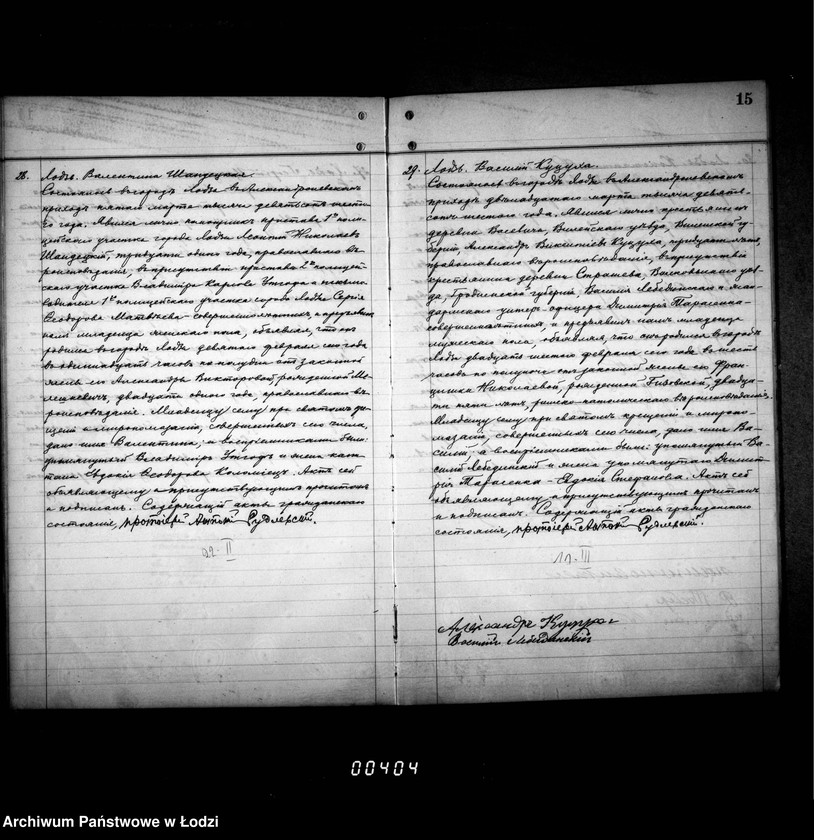 15
28. Лодзь. Валентина Шандецкая.
Состоялось въ городѣ Лодзи въ Александроневскомъ
приходѣ пятаго марта тысяча девятьсотъ шесто-
го года. Явился лично помощникъ пристава 1го поли-
цейскаго участка города Лодзи Леонтій Николаевъ
Шандецкій, тридцати одного года, православнаго вѣ-
роисповѣданія, въ присутствіи пристава 2го полицей-
скаго участка Владиміра Карлова и письмо-
водителя 1го полицейскаго участка города Лодзи Сергія
Ѳеодорова Матвѣева совершеннолѣтнихъ, и предъявилъ
намъ младенца женскаго пола, объявляя, что онъ
родился въ городѣ Лодзи девятаго февраля сего года
въ одиннадцать часовъ по полудни отъ законной
жены его Александры Викторовой, рожденной
двадцати одного года, православнаго вѣ-
роисповѣданія. Младенцу сему при святомъ кре-
щеніи и миропомазаніи, совершенныхъ сего числа,
дано имя Валентина, а воспріемниками были:
упомянутый Владиміръ и жена капи-
тана Евдокія Ѳеодорова Коломіецъ. Актъ сей
объявляющему и присутствующимъ прочитанъ
и подписанъ. Содержащій акты гражданскаго
состоянія, протоіерей Антоній Рудлевскій.
22. II
29. Лодзь. Василій Куцуха.
Состоялось въ городѣ Лодзи въ Александроневскомъ
приходѣ двѣнадцатаго марта тысяча девять-
сотъ шестого года. Явился лично крестьянинъ
деревни Виленскаго уѣзда, Виленской гу-
берніи, Александръ Викентіевъ Куцуха, тридцати лѣтъ,
православнаго вѣроисповѣданія, въ присутствіи
крестьянина деревни Волковыскаго уѣз-
да, Гродненской губерніи, Василія Лебединскаго и жан-
дармскаго унтеръ-офицера Димитрія Тарасенка-
совершеннолѣтнихъ, и предъявилъ намъ младенца
мужескаго пола, объявляя, что онъ родился въ городѣ
Лодзи двадцать шестого февраля сего года въ шесть
часовъ по полуночи отъ законной жены его Фран-
цишки Николаевой, рожденной двадца-
ти пяти лѣтъ, римско-католическаго вѣроисповѣданія.
Младенцу сему при святомъ крещеніи и миропо-
мазаніи, совершенныхъ сего числа, дано имя Ва-
силій, а воспріемниками были: упомянутый Ва-
силій Лебединскій и жена упомянутаго Димит-
рія Тарасенка - Евдокія Стефанова. Актъ сей
объявляющему и присутствующимъ прочитанъ
и подписанъ. Содержащій акты гражданскаго
состоянія, протоіерей Антоній Рудлевскій.
11. III
Александръ Куцуха
Василій Лебединскій
00404
Archiwum Państwowe w Łodzi